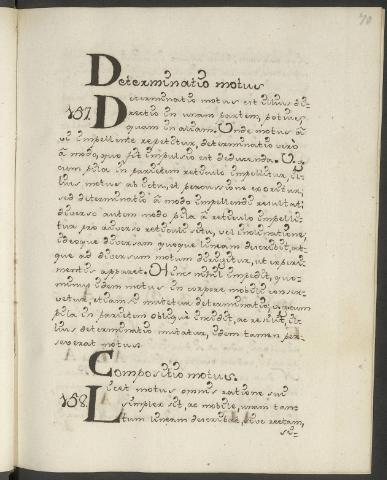 70
Determinatio motus
157. Determinatio motus est illius di-
rectio in unam partem, potius,
quam in aliam. Unde motus à
vi impellente repetitur, determinatio vero
à modo, quo fit impulsio est deducenda. Du
cum pila in parietem reticulo impellitur, il-
lius motus ab ictu, et percussione exoritur,
sed determinatio à modo impellendi resultat;
diverso autem modo pila à reticulo impelli-
tur pro diverso reticuli situ, vel inclinatione,
ideoque diversam quoque lineam describit, at-
que ad diversum motum dirigitur, ut experi-
mentis apparet. Hinc nihil impedit, quo-
minus idem motus in corpore mobili conser-
vetur, etiamsi mutetur determinatio; si quum
pila in parietem obliquè incidit, ac resilit, il-
lius determinatio mutatur, idem tamen per-
severat motus.
Compositio motus.
158. Licet motus omnis ratione sui
simplex sit, ac mobile, unam tan-
tum lineam describat, sive rectam,
si-